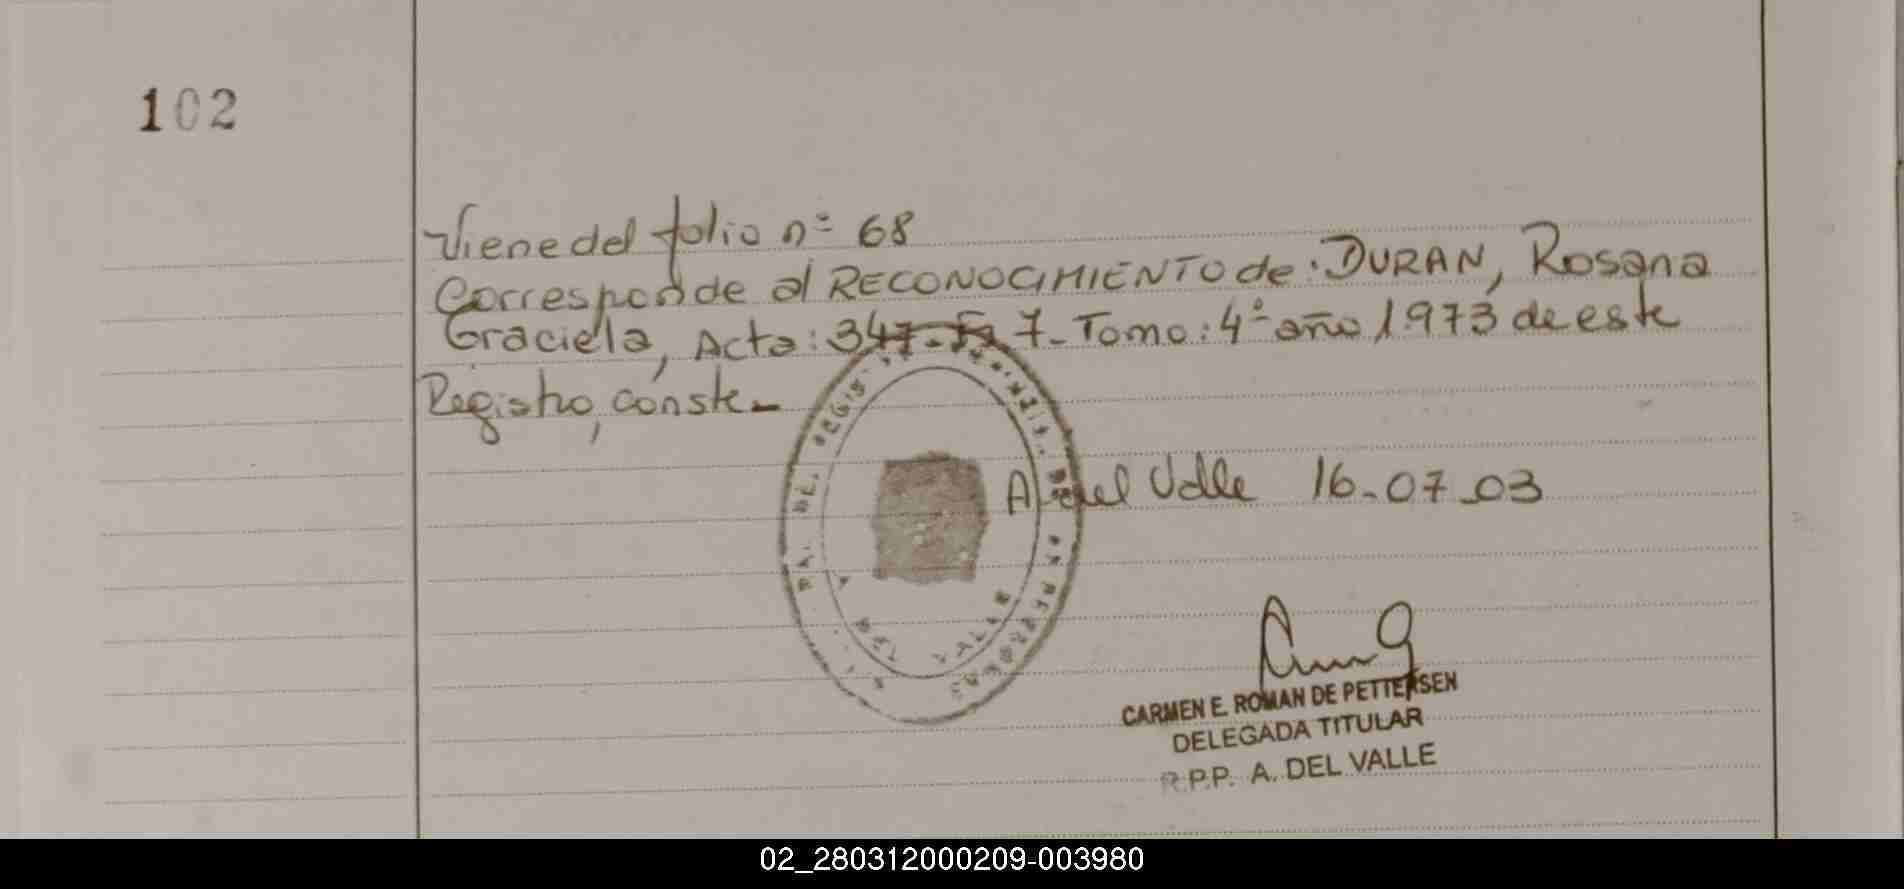 102
Viene del folio nº 68
Corresponde al RECONOCIMIENTO de: DURAN, Rosana
Graciela, Acta: 347- 7- Tomo: 4º año 1.973 de este
Registro, conste-
A del Valle 16-07-03
CARMEN E. ROMAN DE PETTERSEN
DELEGADA TITULAR
R.P.P. A. DEL VALLE
02_280312000209-003980